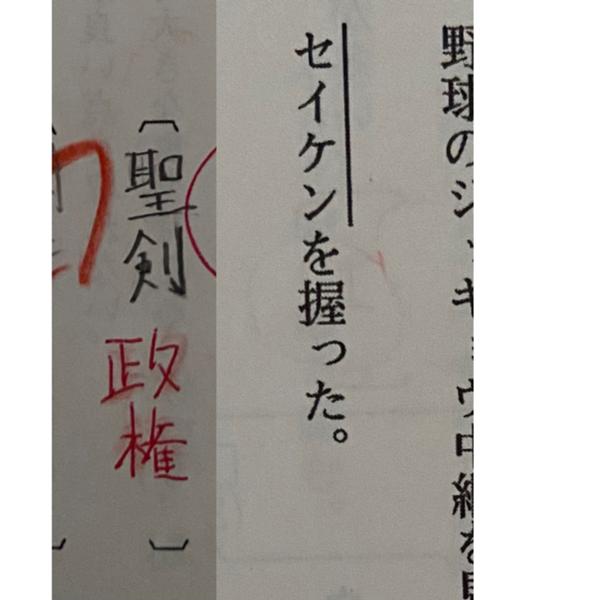 野球のジッキョウ中継を見
セイケンを握った。
聖剣
政権